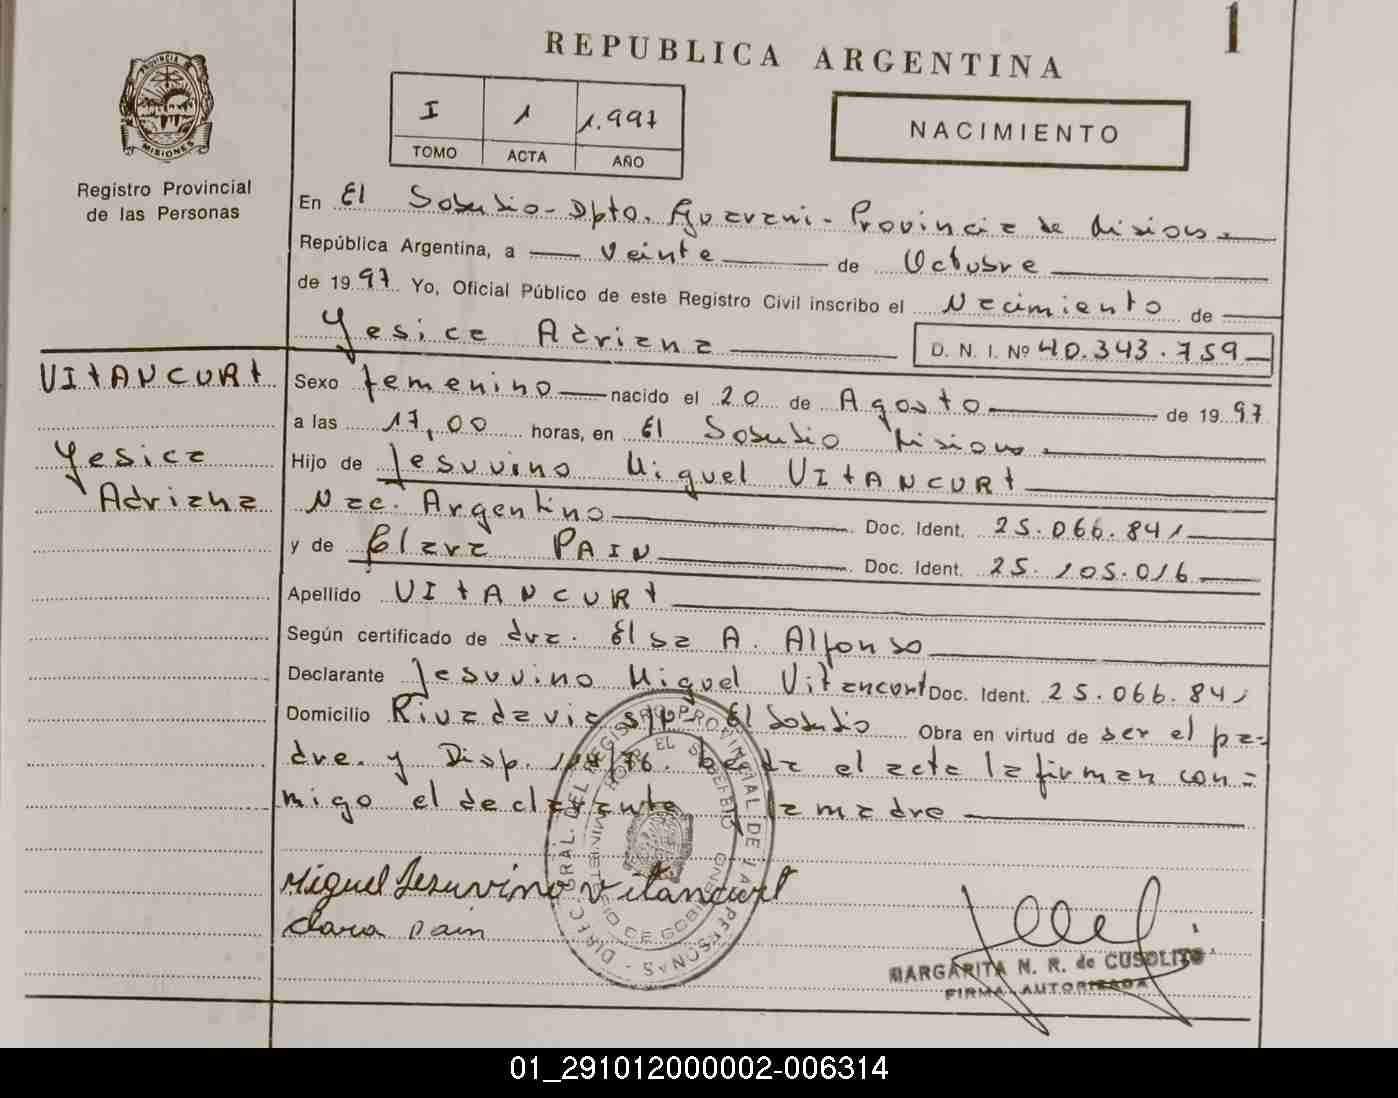 1
REPUBLICA ARGENTINA
PROVINCIA DE
MISIONES
Registro Provincial
de las Personas
I 1 1.997
TOMO ACTA AÑO
NACIMIENTO
En El Soberbio - Dpto. Guarani - Provincia de Misiones
República Argentina, a veinte de Octubre
de 1997 Yo, Oficial Público de este Registro Civil inscribo el Nacimiento de
Yesica Adriana D. N. I. Nº 40.343.759
VITANCURT
Sexo femenino nacido el 20 de Agosto de 1997
a las 17,00 horas, en El Soberbio Misiones
Yesica
Adriana
Hijo de Jesuvino Miguel VITANCURT
Nac. Argentino Doc. Ident. 25.066.841
y de Clara PAIN Doc. Ident. 25.105.016
Apellido VITANCURT
Según certificado de dra. Elsa A. Alfonso
Declarante Jesuvino Miguel Vitancurt Doc. Ident. 25.066.841
Domicilio Rivadavia s/n El Soberbio Obra en virtud de ser el pa=
dre. y Disp. /76. el acta la firman con=
migo el declarante la madre
DIREC. GRAL. DEL REGISTRO PROVINCIAL DE LAS PERSONAS
EL SOBERBIO
MINISTERIO DE GOBIERNO
Miguel Jesuvino Vitancurt
Clara Pain
MARGARITA N. R. de CUSOLITO
FIRMA AUTORIZADA
01_291012000002-006314